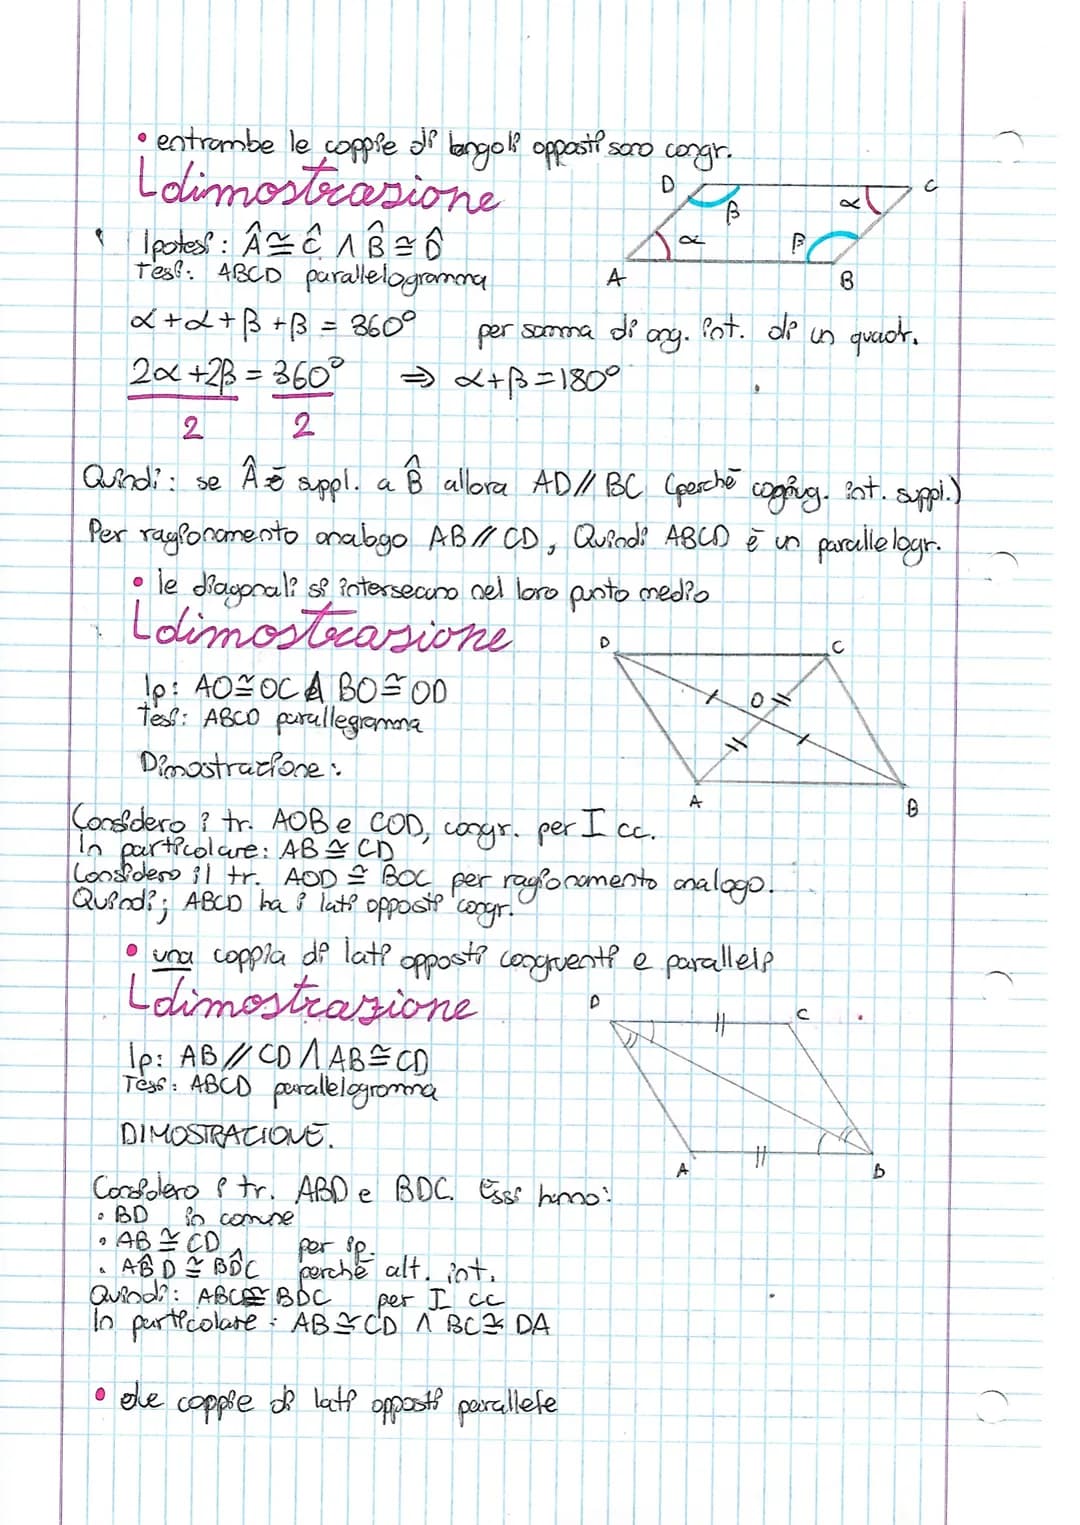 • entrambe le coppie di langoli opposti sono congr.
dimostrazione
D
C
β
α
α
β
A
B
Ipotesi: Â ≅ Ĉ ∧ B̂ ≅ D̂
Tesi: ABCD parallelogramma
α + α + β + β = 360° per somma di ang. int. di un quadr.
2α + 2β = 360° ⇒ α + β = 180°
2 2
Quindi: se Â è suppl. a B̂ allora AD // BC (perché coniug. int. suppl.)
Per ragionamento analogo AB // CD, Quindi ABCD è un parallelogr.
• le diagonali si intersecano nel loro punto medio
dimostrazione
D
C
O
A
B
Ip: AO ≅ OC ∧ BO ≅ OD
Tesi: ABCD parallegramma
Dimostrazione:
Considero i tr. AOB e COD, congr. per I cc.
In particolare: AB ≅ CD
Considero il tr. AOD ≅ BOC per ragionamento analogo.
Quindi; ABCD ha i lati opposti congr.
• una coppia di lati opposti congruenti e paralleli
dimostrazione
D
C
A
B
Ip: AB // CD ∧ AB ≅ CD
Tesi: ABCD parallelogramma
DIMOSTRAZIONE.
Considero i tr. ABD e BDC. Essi hanno:
• BD in comune
• AB ≅ CD per ip.
• AB̂D ≅ BD̂C perché alt. int.
Quindi: ABC ≅ BDC per I cc
In particolare: AB ≅ CD ∧ BC ≅ DA
• due coppie di lati opposti parallele